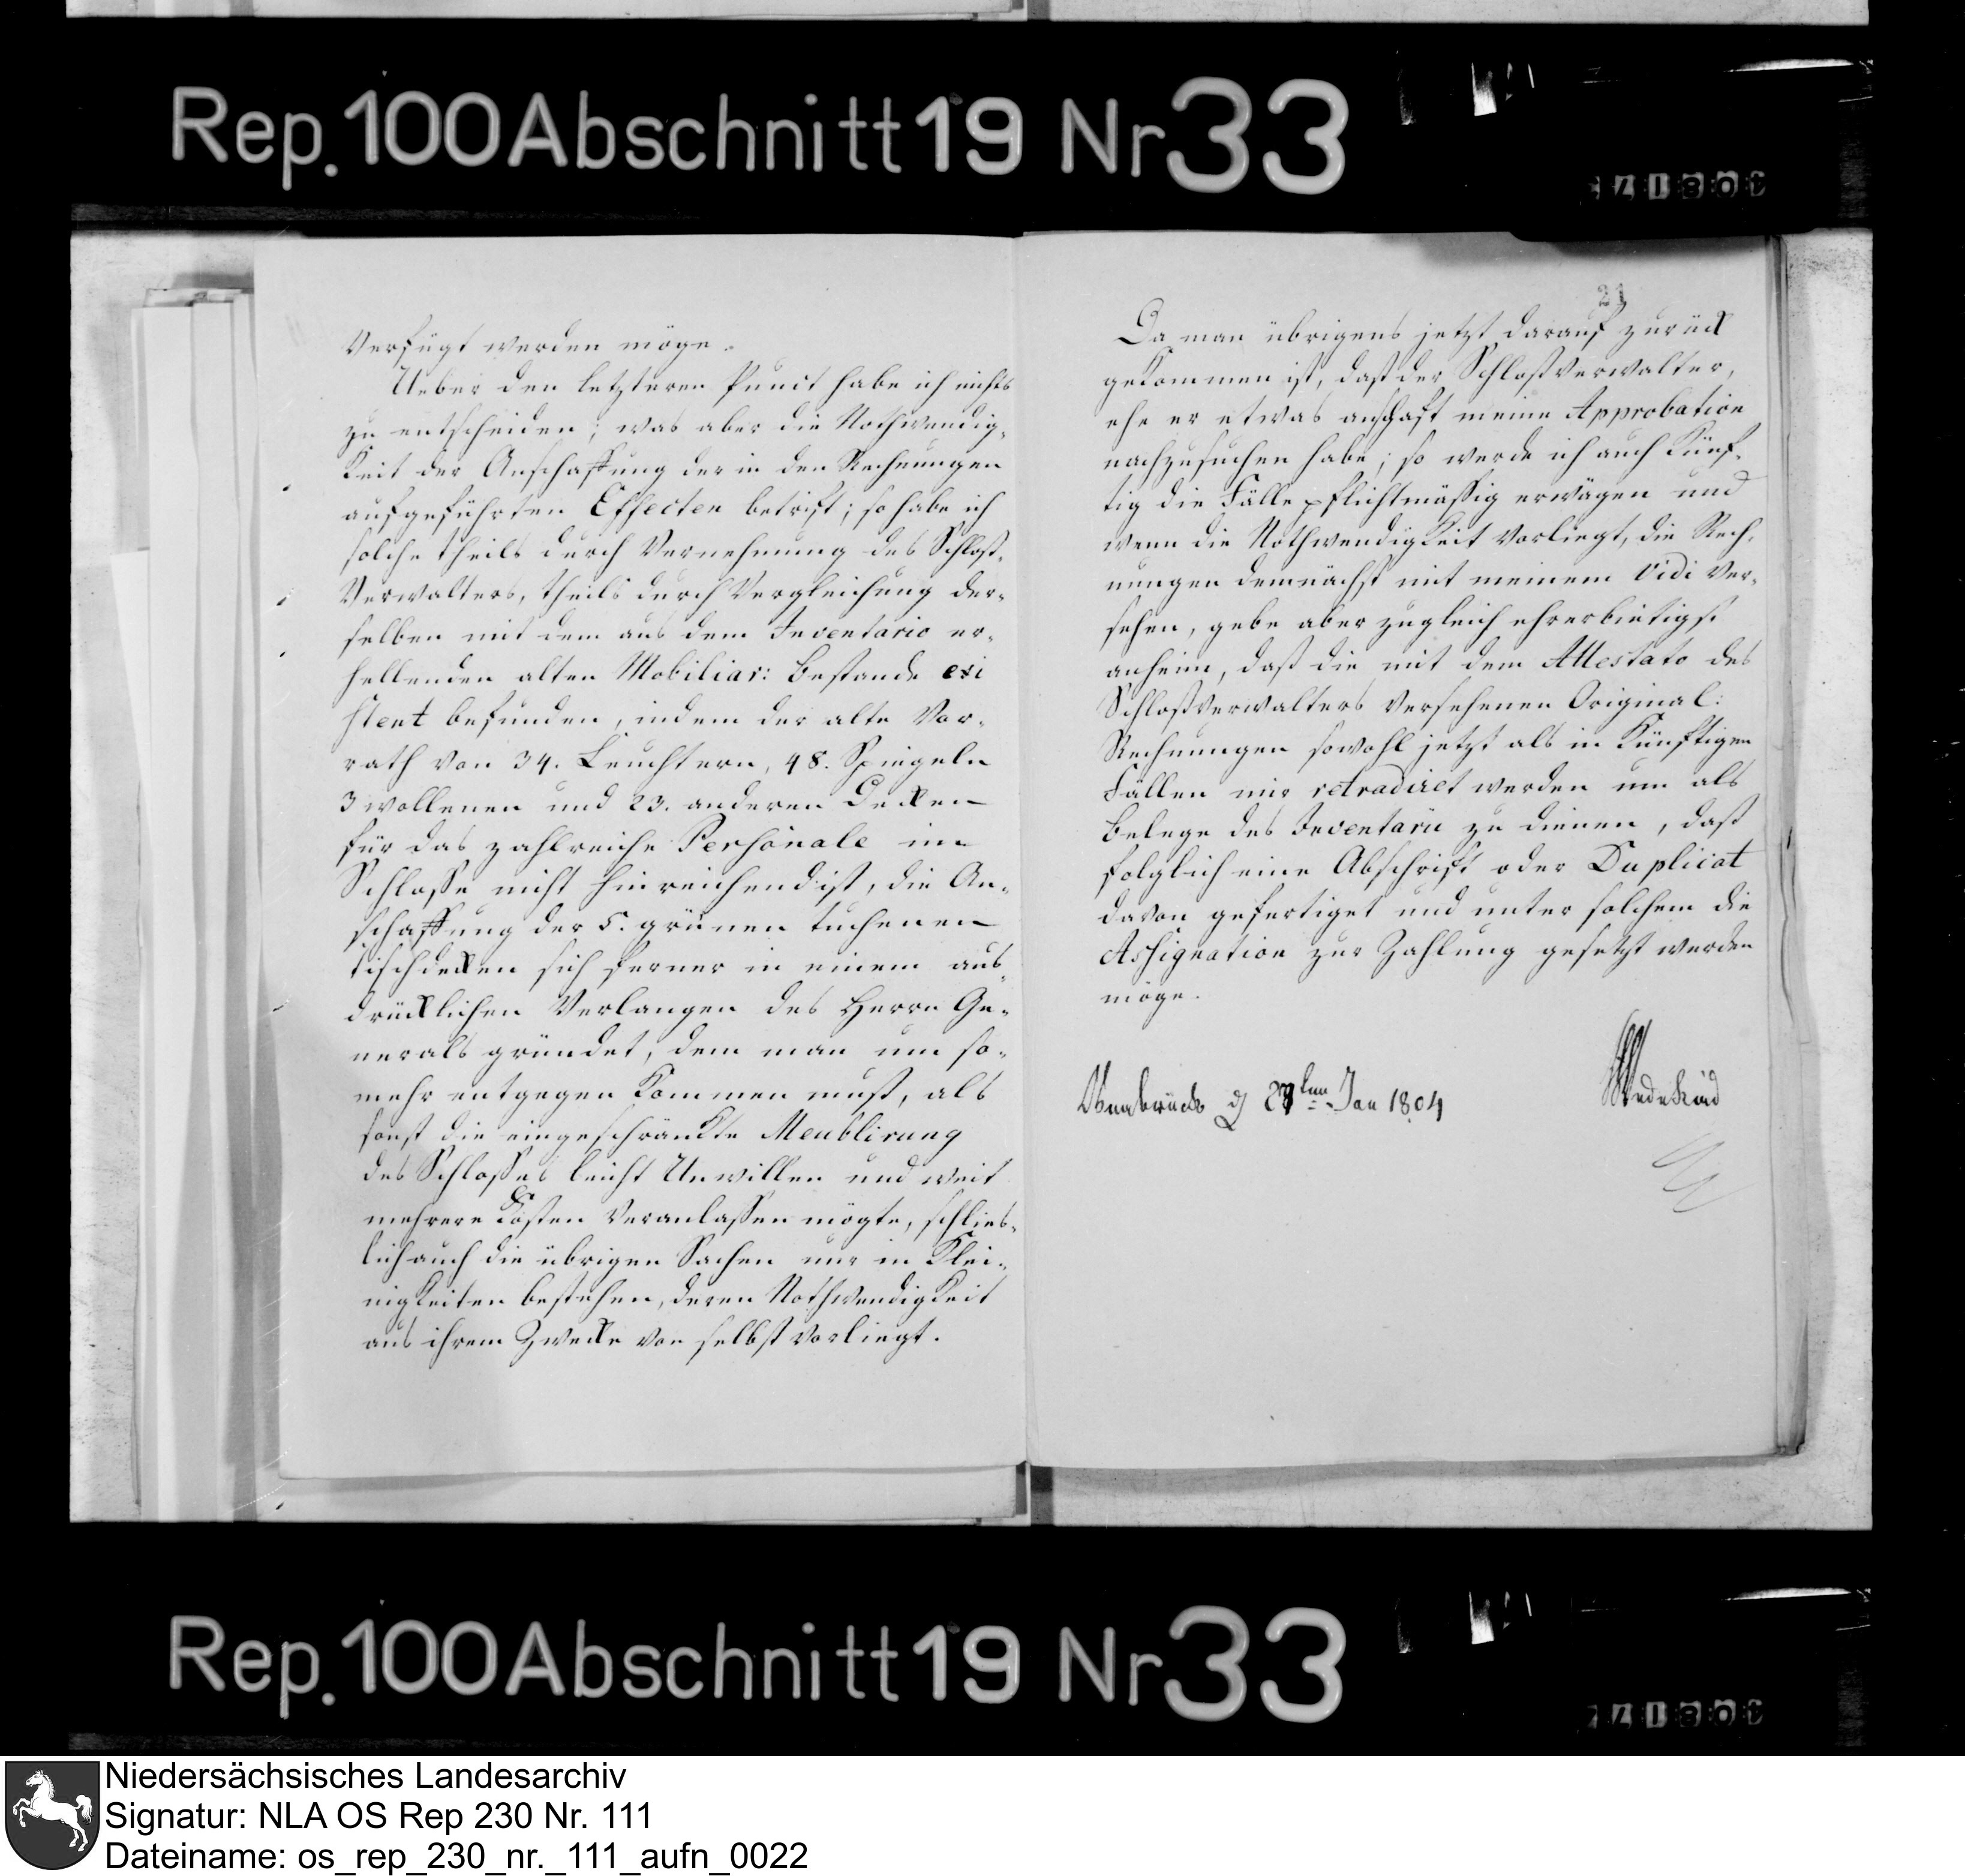 Rep. 100 Abschnitt 19 Nr 33
verfügt werden möge.
Ueber den letzteren Punct habe ich nichts
zu entscheiden; was aber die Nothwendig-
keit der Anschaffung der in den Rechnungen
aufgeführten Effecten betrift; so habe ich
solche theils durch Vernehmung des Schloß-
Verwalters, theils durch Vergleichung der-
selben mit dem aus dem Inventario er-
hellenden alten Mobiliar: Bestande exi
stent befunden, indem der alte Vor-
rath von 34. Leuchtern, 48. Spiegeln
3 wollenen und 23. anderen Decken
für das zahlreiche Personale im
Schlosse nicht hinreichend ist, die An-
schaffung der 5. grünen tuchenen
tischdecken sich ferner in einem aus-
drücklichen Verlangen des Herrn Ge-
nerals gründet, dem man um so-
mehr entgegen kommen muß, als
sonst die eingeschränkte Meublirung
des Schlosses leicht Unwillen und weit
mehrere Kosten veranlassen mögte, schlies-
lich auch die übrigen Sachen nur in Klei-
nigkeiten bestehen, deren Nothwendigkeit
aus ihrem Zwecke von selbst vorliegt.
21
Da man übrigens jetzt darauf zurück
gekommen ist, daß der Schloßverwalter,
ehe er etwas anschaft meine Approbation
nachzusuchen habe; so werde ich auch künf-
tig die Fälle pflichtmässig erwägen und
wenn die Nothwendigkeit vorliegt, die Rech-
nungen demnächst mit meinem Vidi ver-
sehen, gebe aber zugleich ehrerbietigst
anheim, daß die mit dem Attestato des
Schloßverwalters versehenen Original:
Rechnungen sowohl jetzt als in künftigen
Fällen mir retradiret werden um als
Belege des Inventarii zu dienen, daß
folglich eine Abschrift oder Duplicat
davon gefertiget und unter solchem die
Assignation zur Zahlung gesetzt werden
möge.
Osnabrück d Jan 1804
Wedekind
Rep. 100 Abschnitt 19 Nr 33
Niedersächsisches Landesarchiv
Signatur: NLA OS Rep 230 Nr. 111
Dateiname: os_rep_230_nr._111_aufn_0022